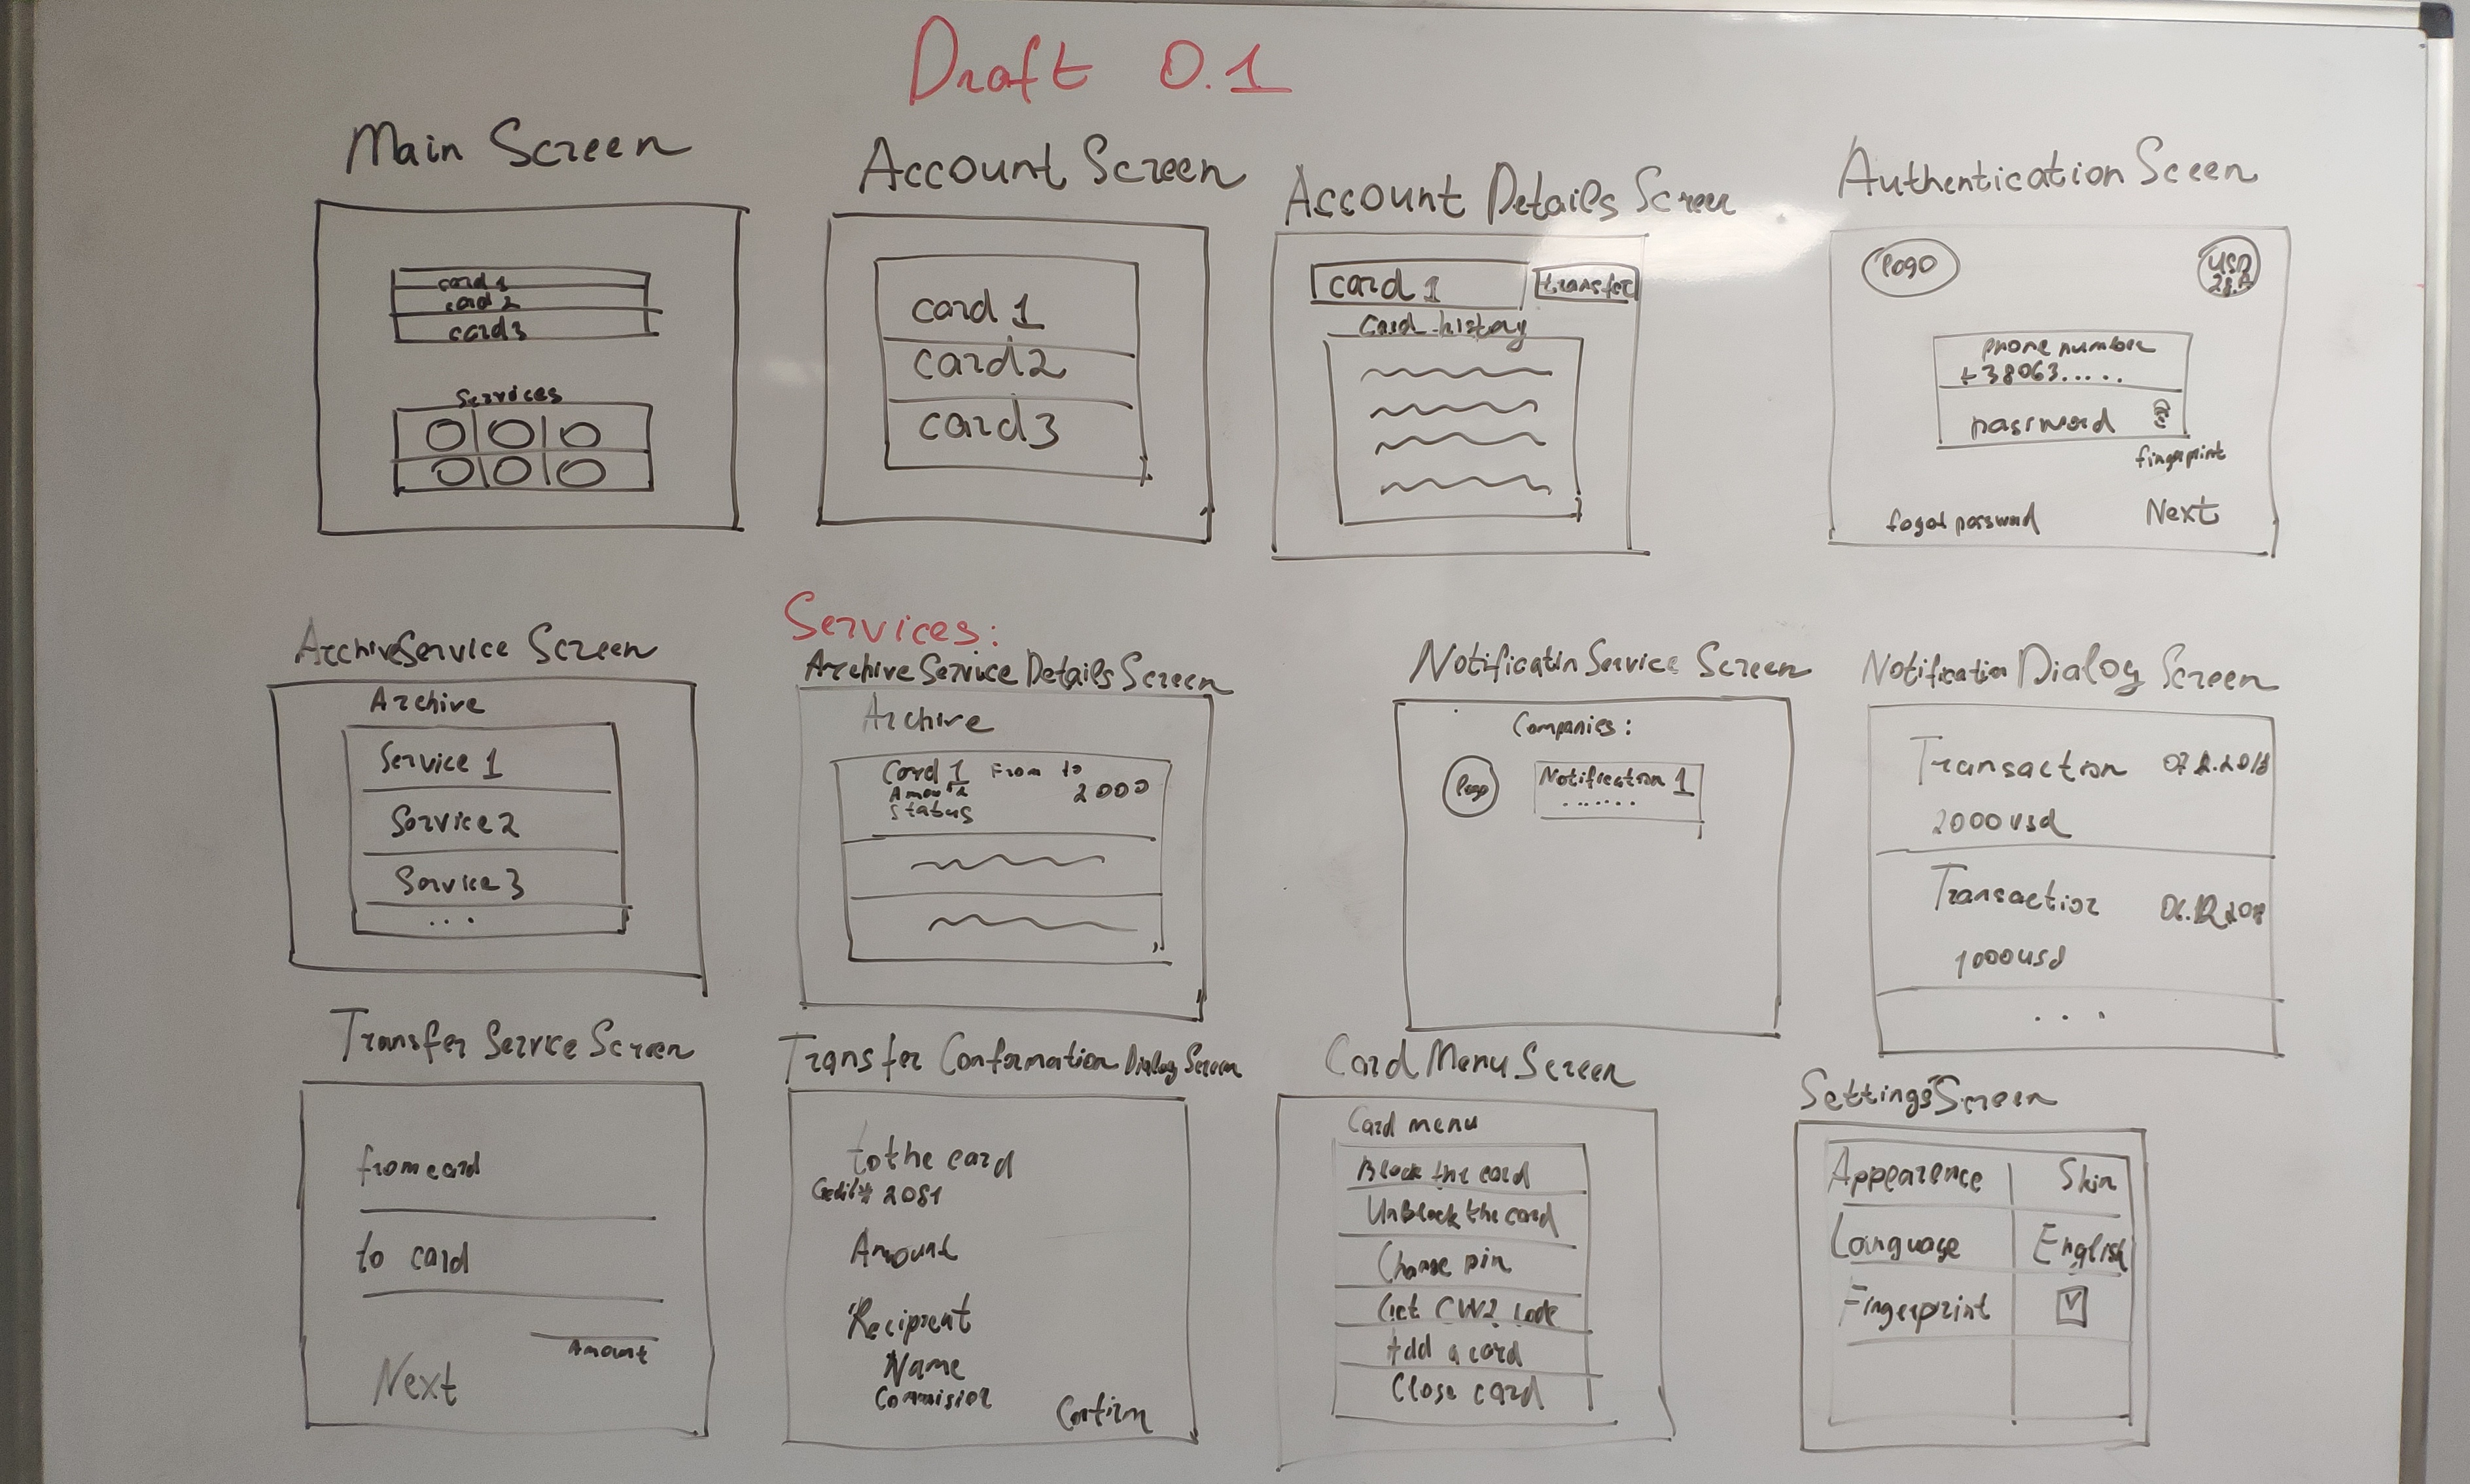 Draft 0.1
Main Screen
card 1
card 2
card3
Services
Account Screen
card 1
card2
card3
Account Details Screen
card 1
transfer
Card history
Authentication Sceen
logo
USD
phone number
+38063.....
password
fingerprint
fogot password
Next
Services:
ArchiveService Screen
Archive
Service 1
Service 2
Service 3
...
ArchiveServiceDetailsScreen
Archive
Card 1 From to
Amount 2000
Status
NotificatinService Screen
Companies:
logo
Notification 1
.......
NotificationDialog Screen
Transaction
2000 usd
Transaction
1000 usd
...
Transfer Service Screen
from card
to card
Amount
Next
Transfer Conformation Dialog Screen
to the card
2081
Amount
Recipient
Name
Commision
Confirm
Card Menu Screen
Card menu
Block the card
UnBlock the card
Change pin
Get CVV2 code
Add a card
Close card
SettingsScreen
Appearence Skin
Language English
Fingerprint